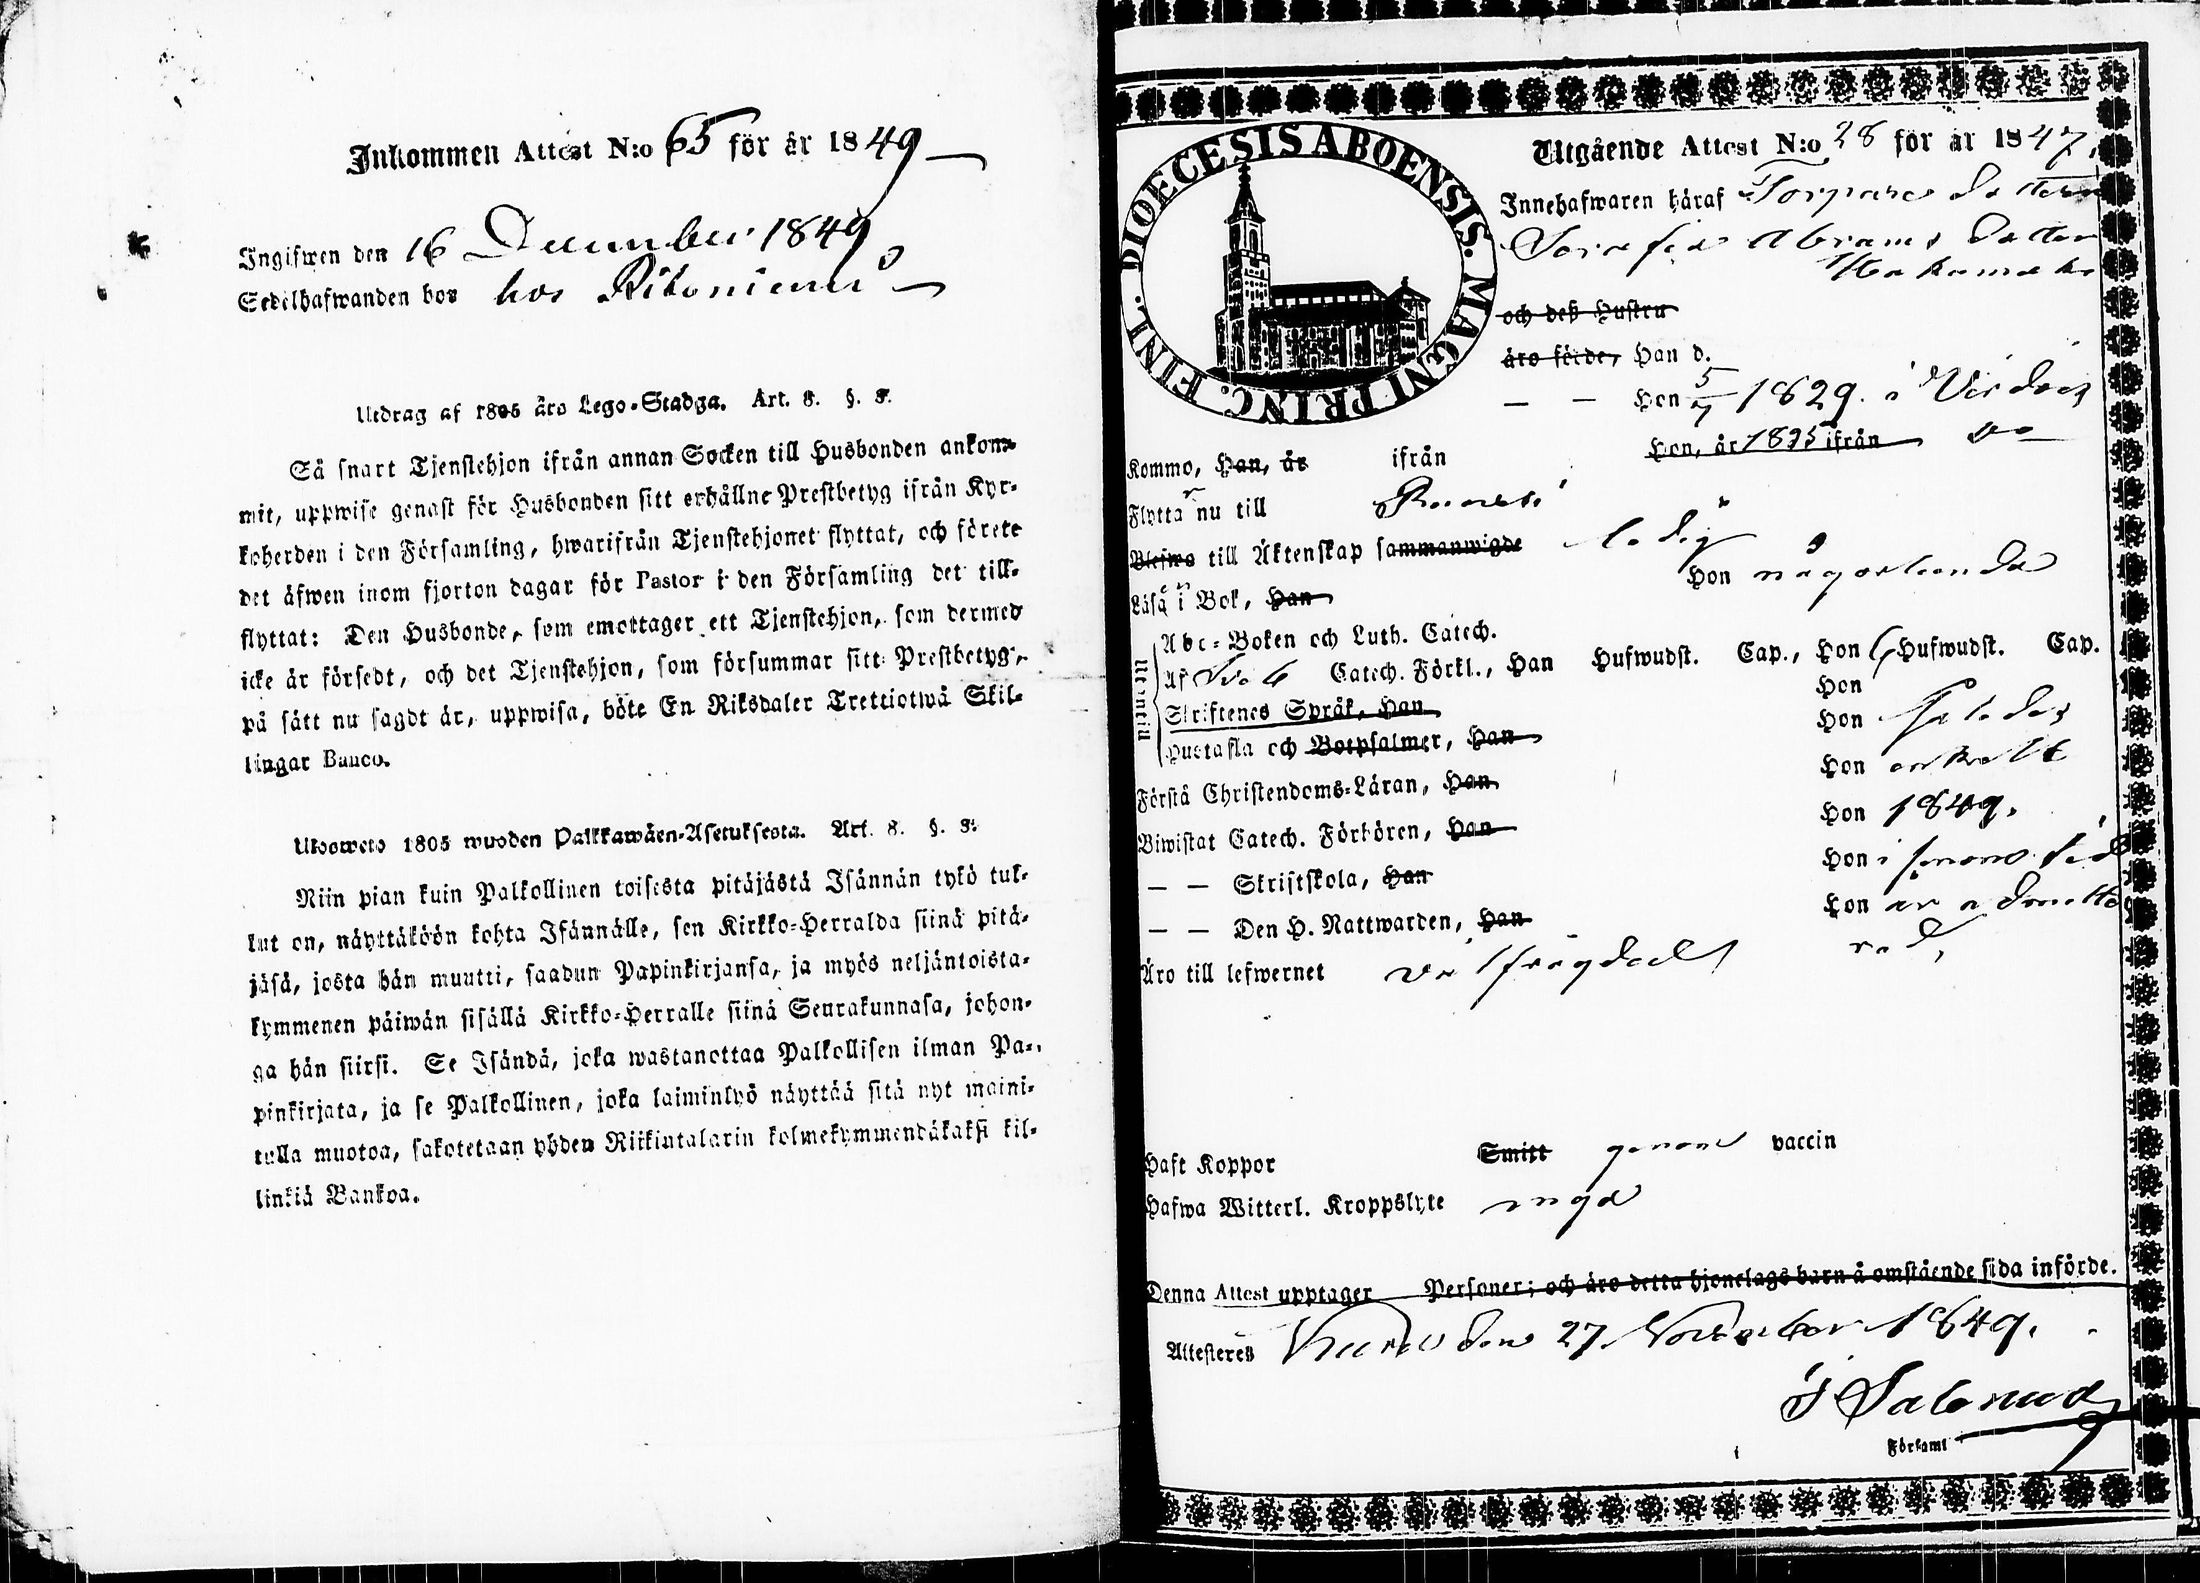 Inkommen Attest N:o 65 för år 1849
Ingifwen den 16 December 1849
Sedelhafwanden bor hos
Utdrag af 1805 års Lego-Stadga. Art. 8. §. 8.
Så snart Tjenstehjon ifrån annan Socken till Husbonden ankom-
mit, uppwise genast för Husbonden sitt erhållne Prestbetyg ifrån Kyr-
koherden i den Församling, hwarifrån Tjenstehjonet flyttat, och förete
det äfwen inom fjorton dagar för Pastor i den Församling det till-
flyttat: Den Husbonde, som emottager ett Tjenstehjon, som dermed
icke är försedt, och det Tjenstehjon, som försummar sitt Prestbetyg,
på sätt nu sagdt är, uppwisa, böte En Riksdaler Trettiotwå Skil-
lingar Banco.
Ulosweto 1805 wuoden Palkkawäen-Asetuksesta. Art. 8. §. 8.
Niin pian kuin Palkollinen toisesta pitäjästä Isännän tykö tul-
lut on, näyttäköön kohta Isännälle, sen Kirkko-Herralda siinä pitä-
jäsä, josta hän muutti, saadun Papinkirjansa, ja myös neljäntoista-
kymmenen päiwän sisällä Kirkko-Herralle siinä Seurakunnasa, johon-
ga hän siirsi. Se Isändä, joka wastanottaa Palkollisen ilman Pa-
pinkirjata, ja se Palkollinen, joka laiminlyö näyttää sitä nyt maini-
tulla muotoa, sakotetaan yhden Riikintalarin kolmekymmendäkaksi kil-
linkiä Bankoa.
DIOECESIS ABOENSIS. MAGNI PRINC. FINL.
Utgående Attest N:o 28 för år 1847.
Innehafwaren häraf Torpare dottern
Serafia Abrams dotter
och deß Hustru
äro födde, Han d.
— — Hon 5/7 1829. i
Kommo, Han, år ifrån Hon, år 1835 ifrån Do
Flytta r nu till
Blefwo till Äktenskap sammanwigde ledig
Läsa i Bok, Han Hon någorlunda
Utantill
Abc-Boken och Luth. Catech.
Af Catech. Förkl., Han Hufwudst. Cap., Hon 6 Hufwudst. Cap.
Skriftenes Språk, Han Hon
Hustafla och Botpsalmer, Han Hon
Förstå Christendoms-Läran, Han Hon enkelt
Biwistat Catech. Förhören, Han Hon 1849.
— — Skriftskola, Han Hon i
— — Den H. Nattwarden, Han Hon är admitte
rad,
Äro till lefwernet välfrägdad
Haft Koppor Smitt genom vaccin
Hafwa Witterl. Kroppslyte inga
Denna Attest upptager Personer; och äro detta hjonelags barn å omstående sida införde.
Attesteres den 27 November 1849.
Församl